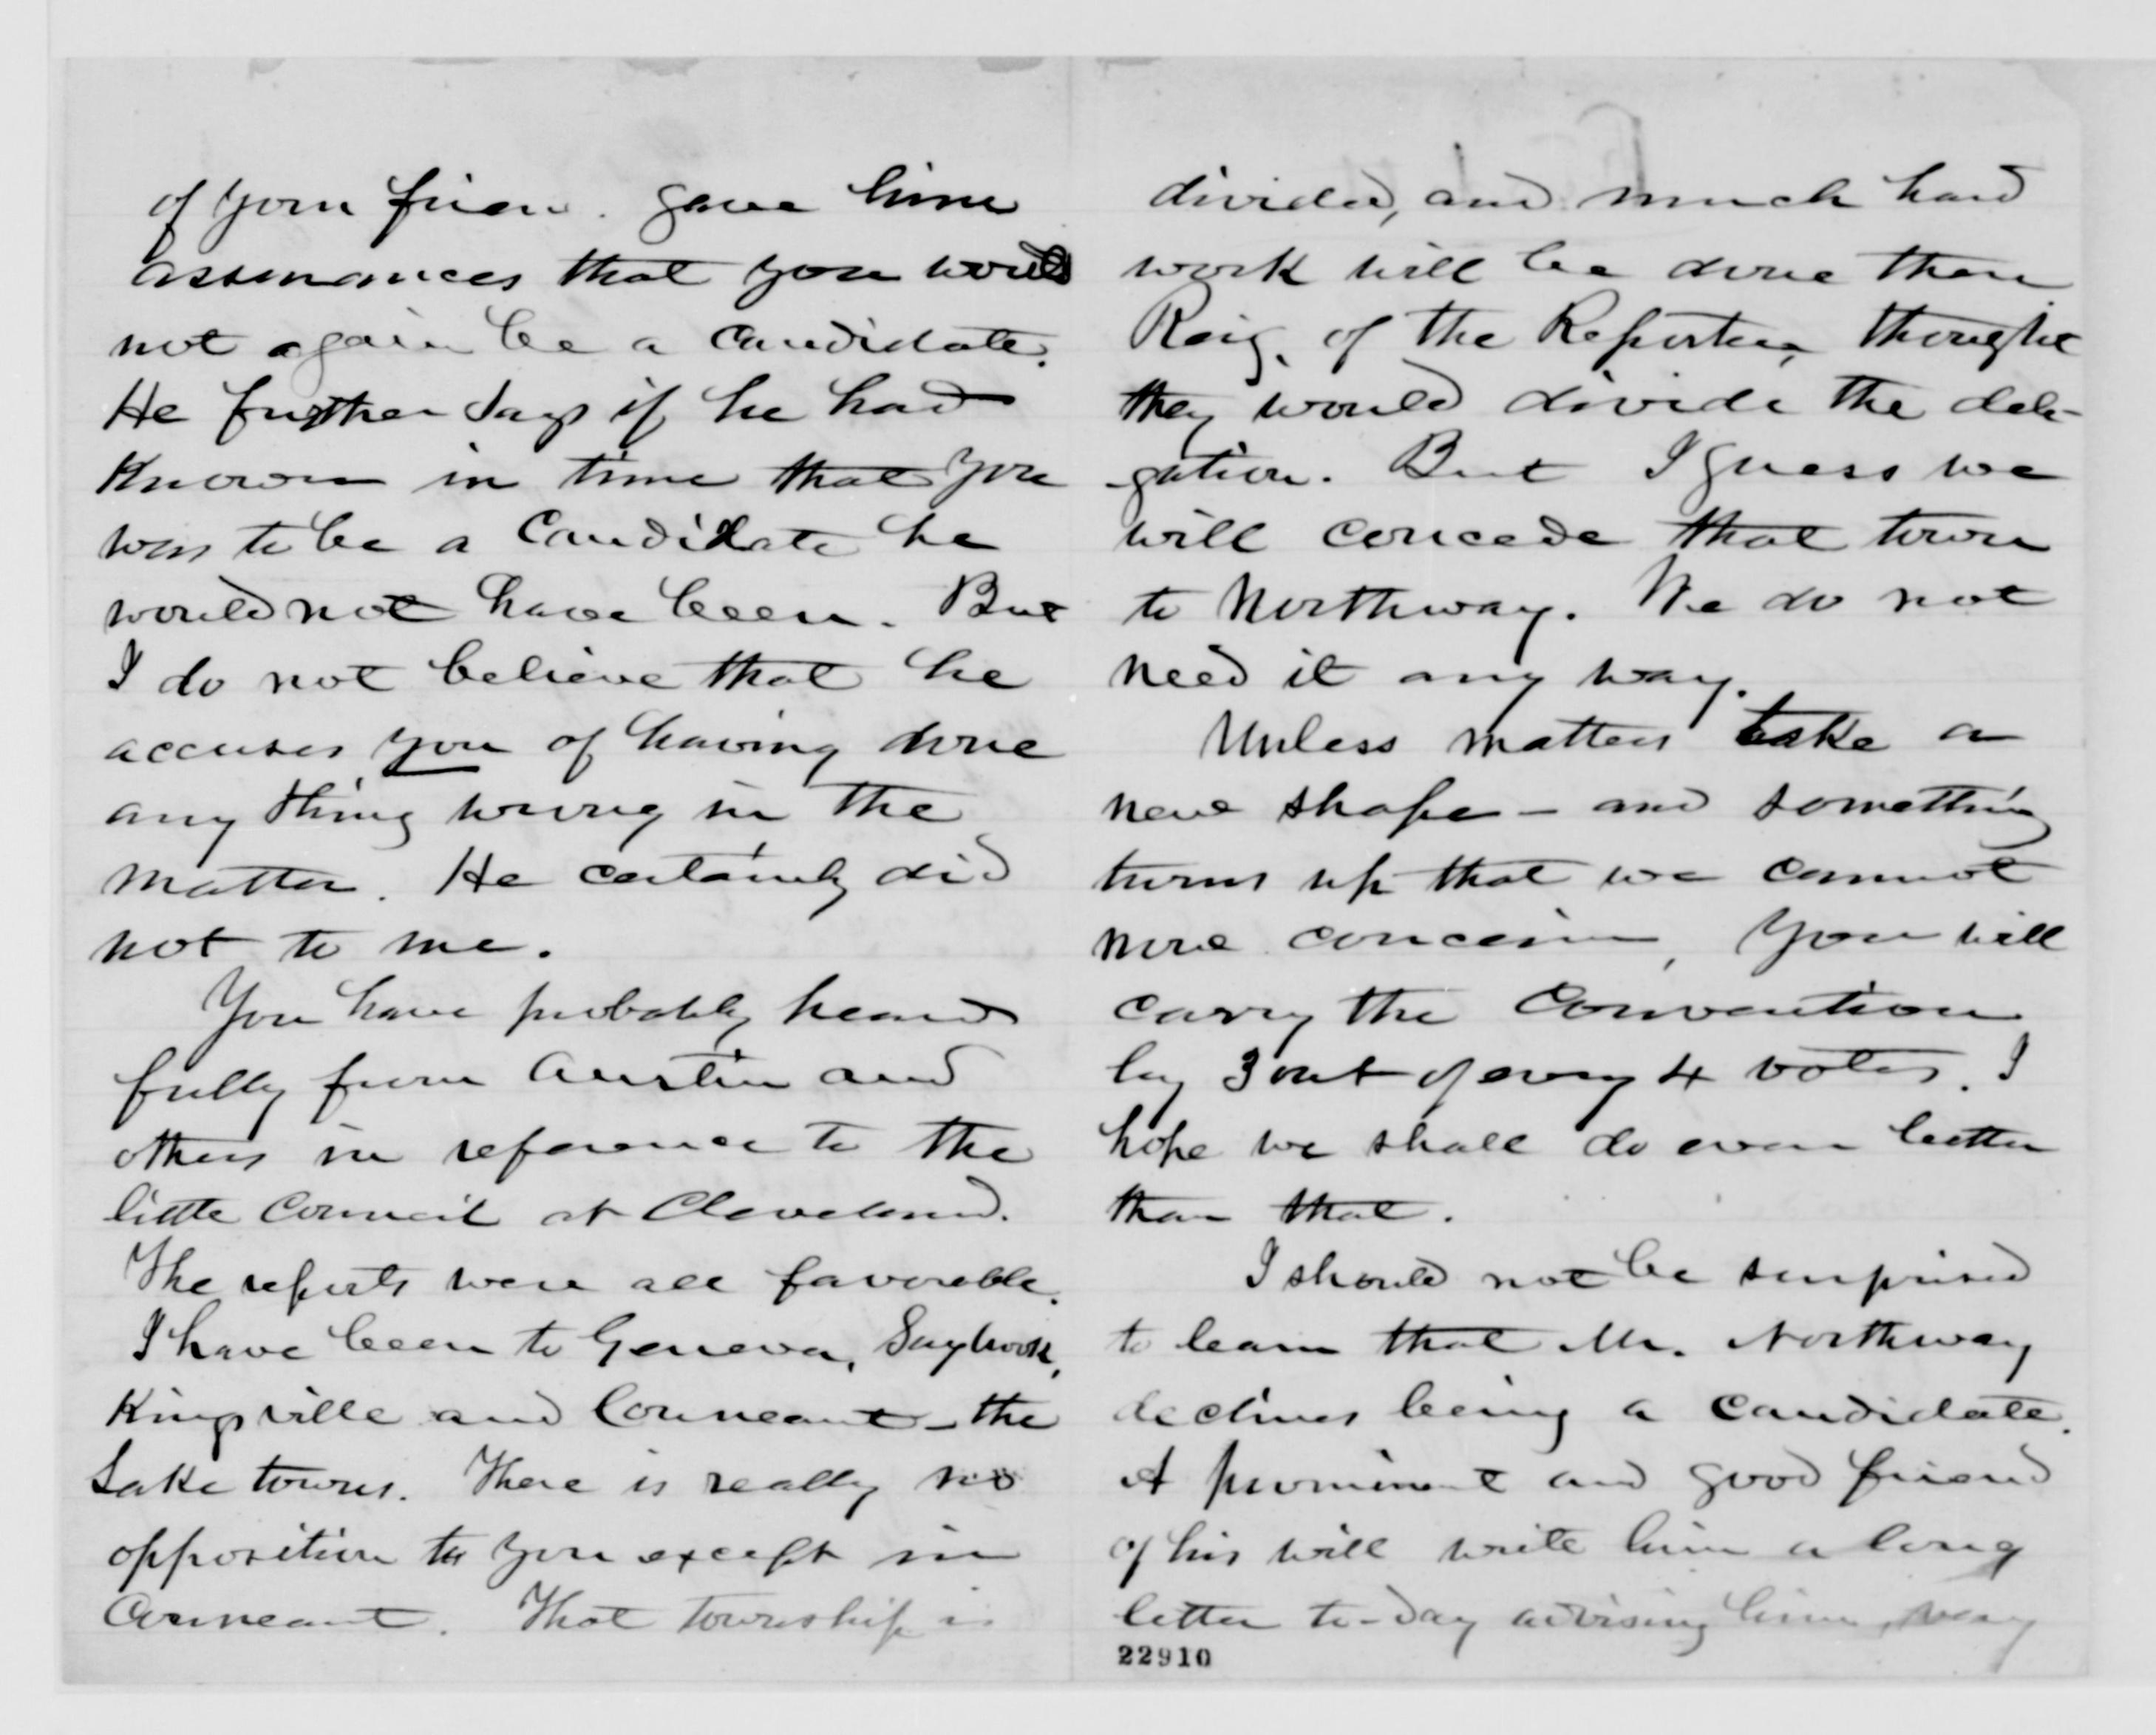 of your frien. gave him
assurances that you would
not again be a candidate.
He further says if he had
known in time that you
was to be a candidate he
would not have been. But
I do not believe that he
accuses you of having done
any thing wrong in the
matter. He certainly did
not to me.
You have probably heard
fully from Austin and
others in reference to the
little council at Cleveland.
The reports were all favorable.
I have been to Geneva, Saybrook,
Kingsville and Conneaut - the
Lake towns. There is really no
opposition to you except in
Conneaut. That township is
divided, and much hard
work will be done there
Reig. of the Reporter, thought
they would divide the dele-
gation. But I guess we
will concede that town
to Northway. We do not
need it any way.
Unless matters take a
new shape - and something
turns up that we cannot
now conceive, you will
carry the Convention
by 3 out of every 4 votes. I
hope we shall do even better
than that.
I should not be surprised
to learn that Mr. Northway
declines being a candidate.
A prominent and good friend
of his will write him a long
letter to-day advising him, very
22910